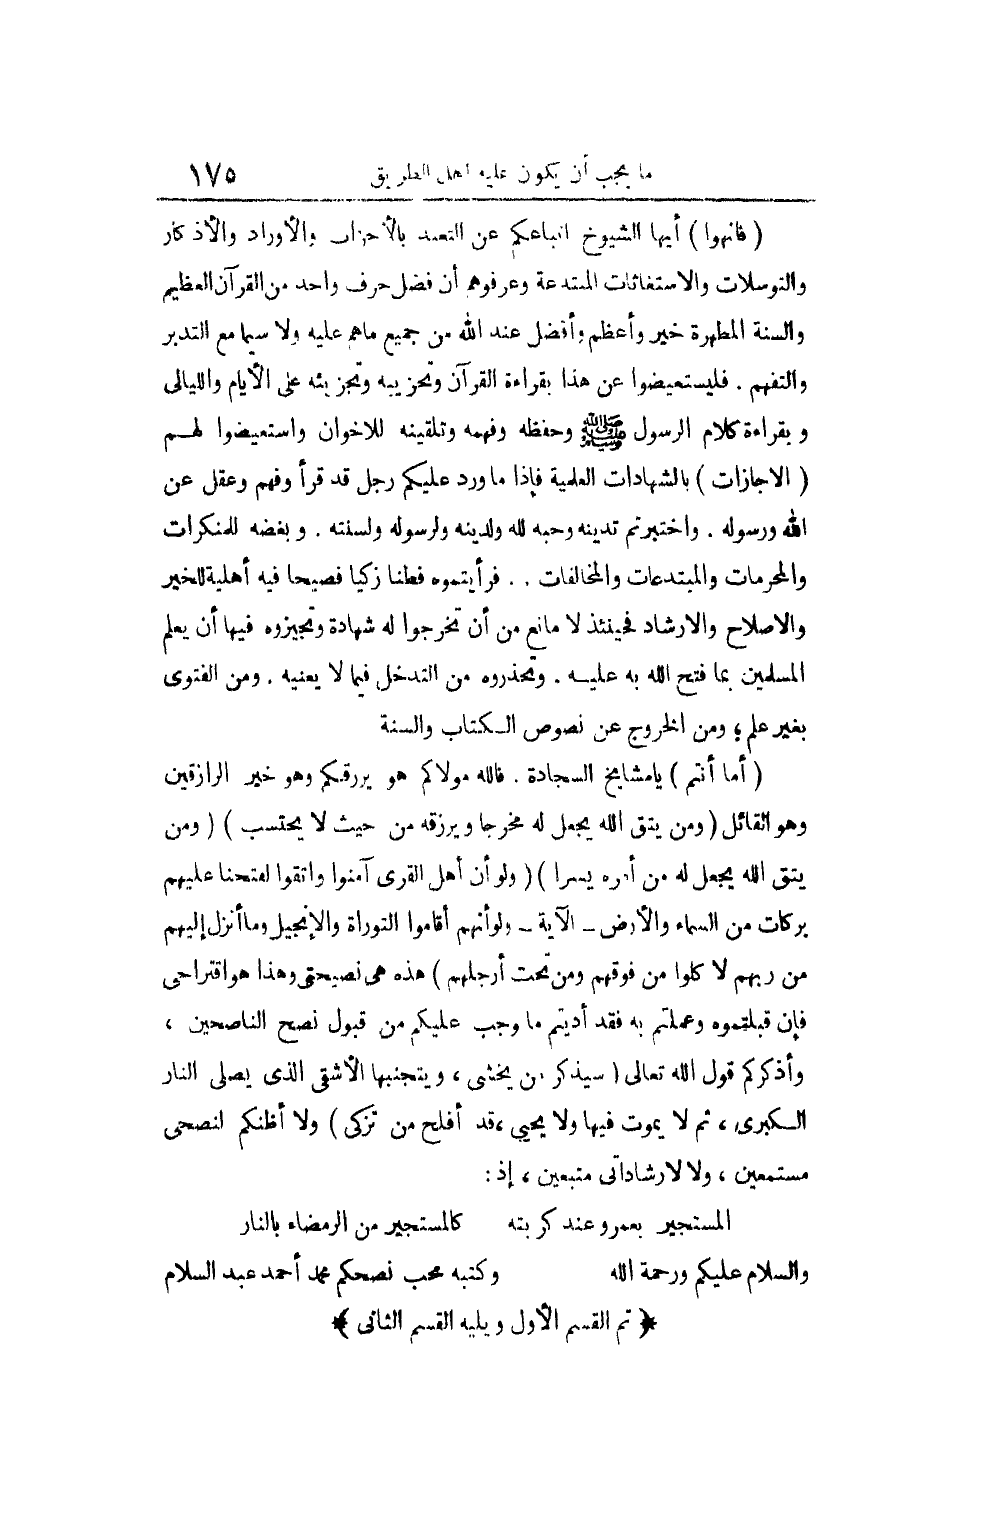 ما يجب أن يكون عليه أهل الطريق ١٧٥
( فانهوا ) أيها الشيوخ اتباعكم عن التعبد بالأحزاب والأوراد والأذكار
والتوسلات والاستغاثات المبتدعة وعرفوهم أن فضل حرف واحد من القرآن العظيم
والسنة المطهرة خير وأعظم وأفضل عند الله من جميع ماهم عليه ولا سيما مع التدبر
والتفهم . فليستعيضوا عن هذا بقراءة القرآن وتحزيبه وتجزيئه على الأيام والليالى
وبقراءة كلام الرسول ﷺ وحفظه وفهمه وتلقينه للاخوان واستعيضوا لهم
( الاجازات ) بالشهادات العلمية فإذا ما ورد عليكم رجل قد قرأ وفهم وعقل عن
الله ورسوله . واختبرتم تدينه وحبه لله ولدينه ولرسوله ولسنته . وبغضه للمنكرات
والمحرمات والمبتدعات والمخالفات . . فرأيتموه فطنا زكيا فصيحا فيه أهلية للخير
والاصلاح والارشاد فحينئذ لا مانع من أن تخرجوا له شهادة وتجيزوه فيها أن يعلم
المسلمين بما فتح الله به عليه . وتحذروه من التدخل فيما لا يعنيه . ومن الفتوى
بغير علم ، ومن الخروج عن نصوص الكتاب والسنة
( أما أنتم ) يا مشايخ السجادة . فالله مولاكم هو يرزقكم وهو خير الرازقين
وهو القائل ( ومن يتق الله يجعل له مخرجا ويرزقه من حيث لا يحتسب ) ( ومن
يتق الله يجعل له من أمره يسرا ) ( ولو أن أهل القرى آمنوا واتقوا لفتحنا عليهم
بركات من السماء والأرض – الآية – ولو أنهم أقاموا التوراة والإنجيل وما أنزل إليهم
من ربهم لا كلوا من فوقهم ومن تحت أرجلهم ) هذه هى نصيحتى وهذا هو اقتراحى
فإن قبلتموه وعملتم به فقد أديتم ما وجب عليكم من قبول نصح الناصحين ،
وأذكركم قول الله تعالى ( سيذكر من يخشى ، ويتجنبها الأشقى الذى يصلى النار
الكبرى ، ثم لا يموت فيها ولا يحيى ، قد أفلح من تزكى ) ولا أظنكم لنصحى
مستمعين ، ولا لارشاداتى متبعين ، إذ :
المستجير بعمرو عند كربته كالمستجير من الرمضاء بالنار
والسلام عليكم ورحمة الله وكتبه محب نصحكم محمد أحمد عبد السلام
﴿ تم القسم الأول ويليه القسم الثانى ﴾